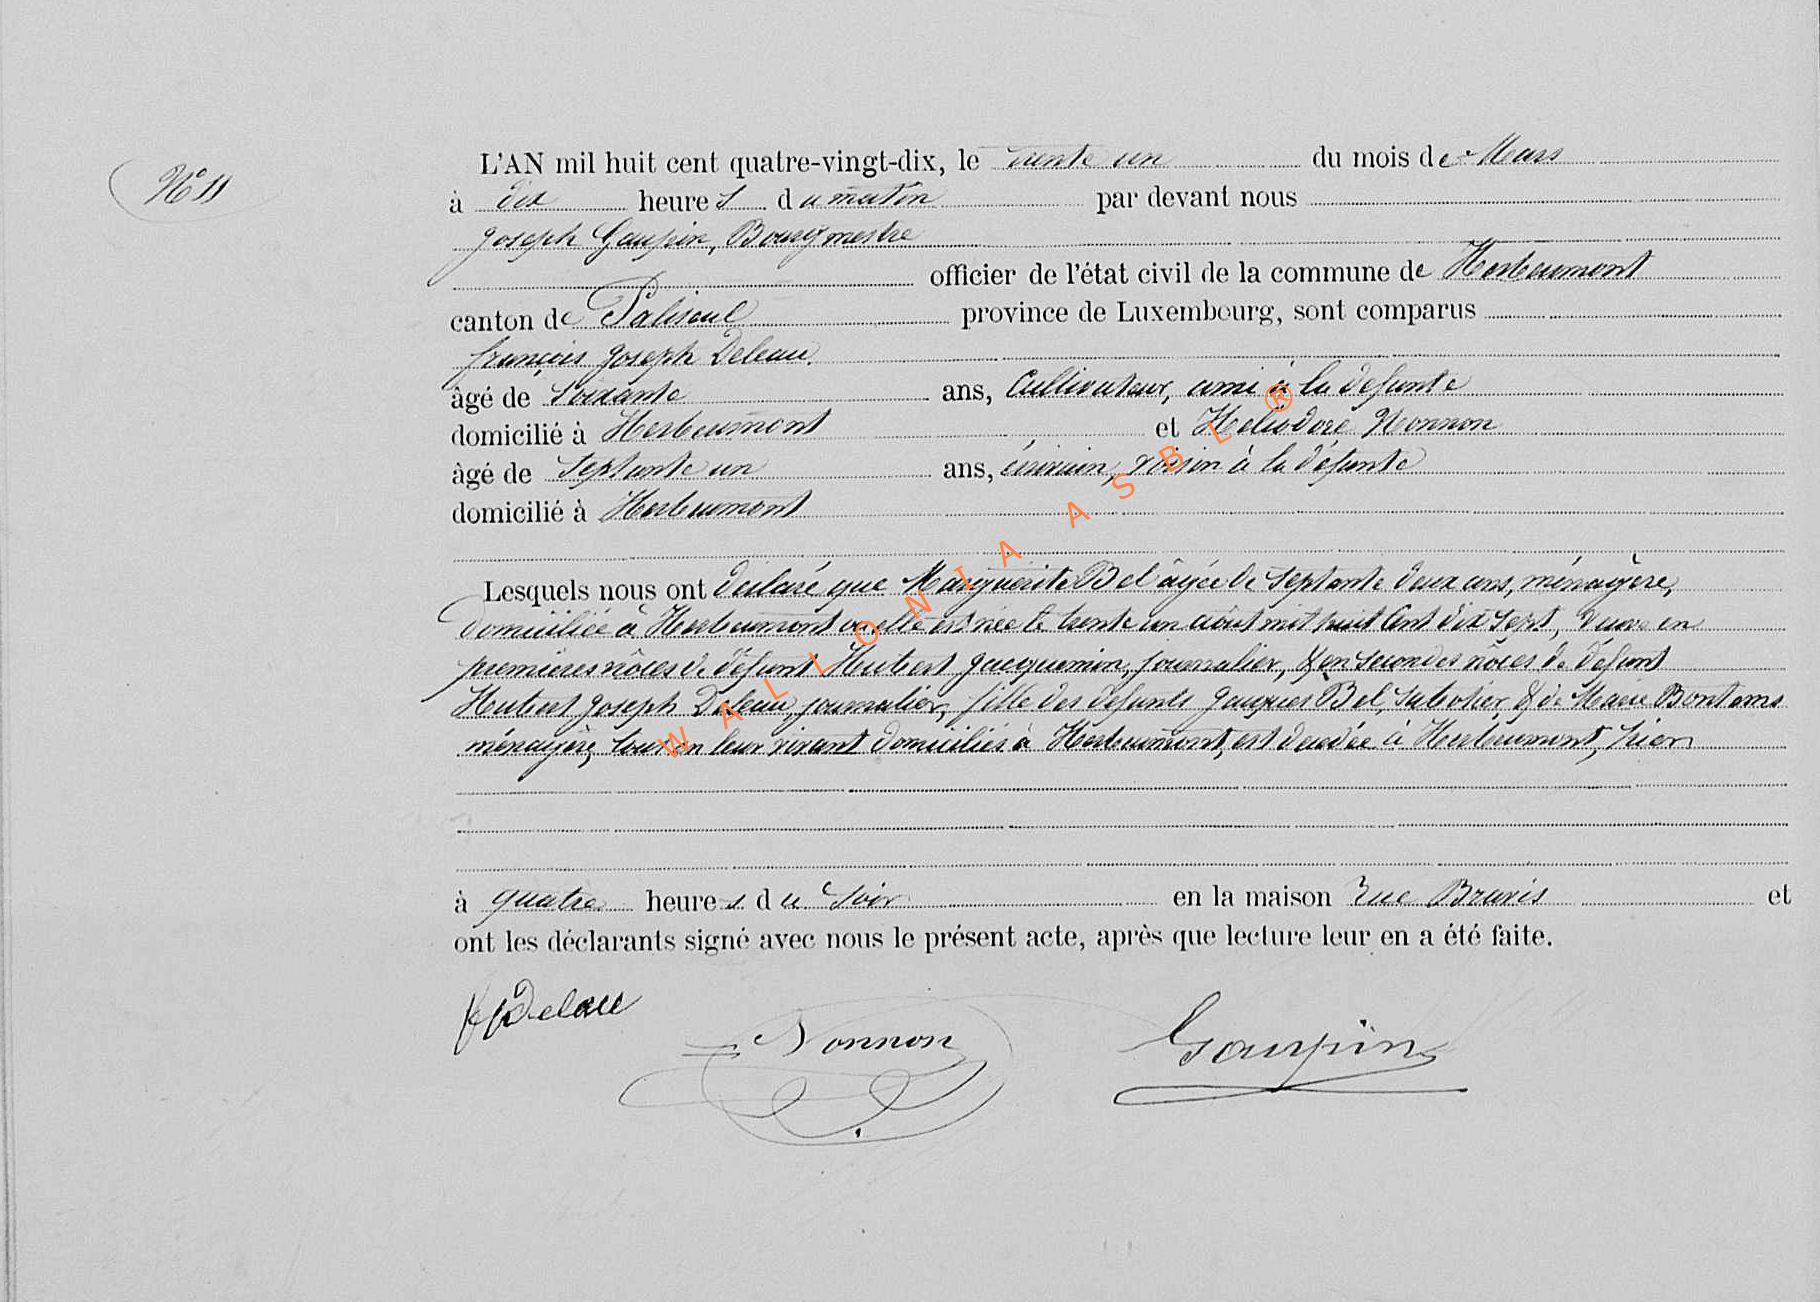 N° 11
L'AN mil huit cent quatre-vingt-dix, le trente un du mois de Mars
à dix heures du matin par devant nous
Joseph Gaupin, Bourgmestre
officier de l'état civil de la commune de Herbeumont
canton de Paliseul province de Luxembourg, sont comparus
françois Joseph Deleau,
âgé de soixante ans, Cultivateur, ami à la défunte
domicilié à Herbeumont et Heliodore Nonnon
âgé de Septante un ans, écrivain, voisin à la défunte
domicilié à Herbeumont
Lesquels nous ont déclaré que Marguerite Bel âgée de septante deux ans, ménagère,
domiciliée à Herbeumont où elle est née le trente un août mil huit Cent dix sept, veuve en
premières nôces de défunt Hubert Jacquemin, journalier, & en secondes nôces de défunt
Hubert Joseph Deleau, journalier, fille des défunts Jacques Bel, sabotier & de Marie Bontems
ménagère, tous en leur vivant domiciliés à Herbeumont, est décédée à Herbeumont, hier
à quatre heures du soir en la maison rue et
ont les déclarants signé avec nous le présent acte, après que lecture leur en a été faite.
Deleau
Nonnon
Gaupin
WALLONIA ASBL ®